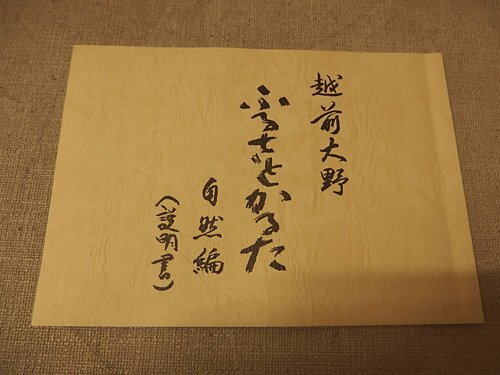 越前大野
ふるさとかるた
自然編
(説明書)